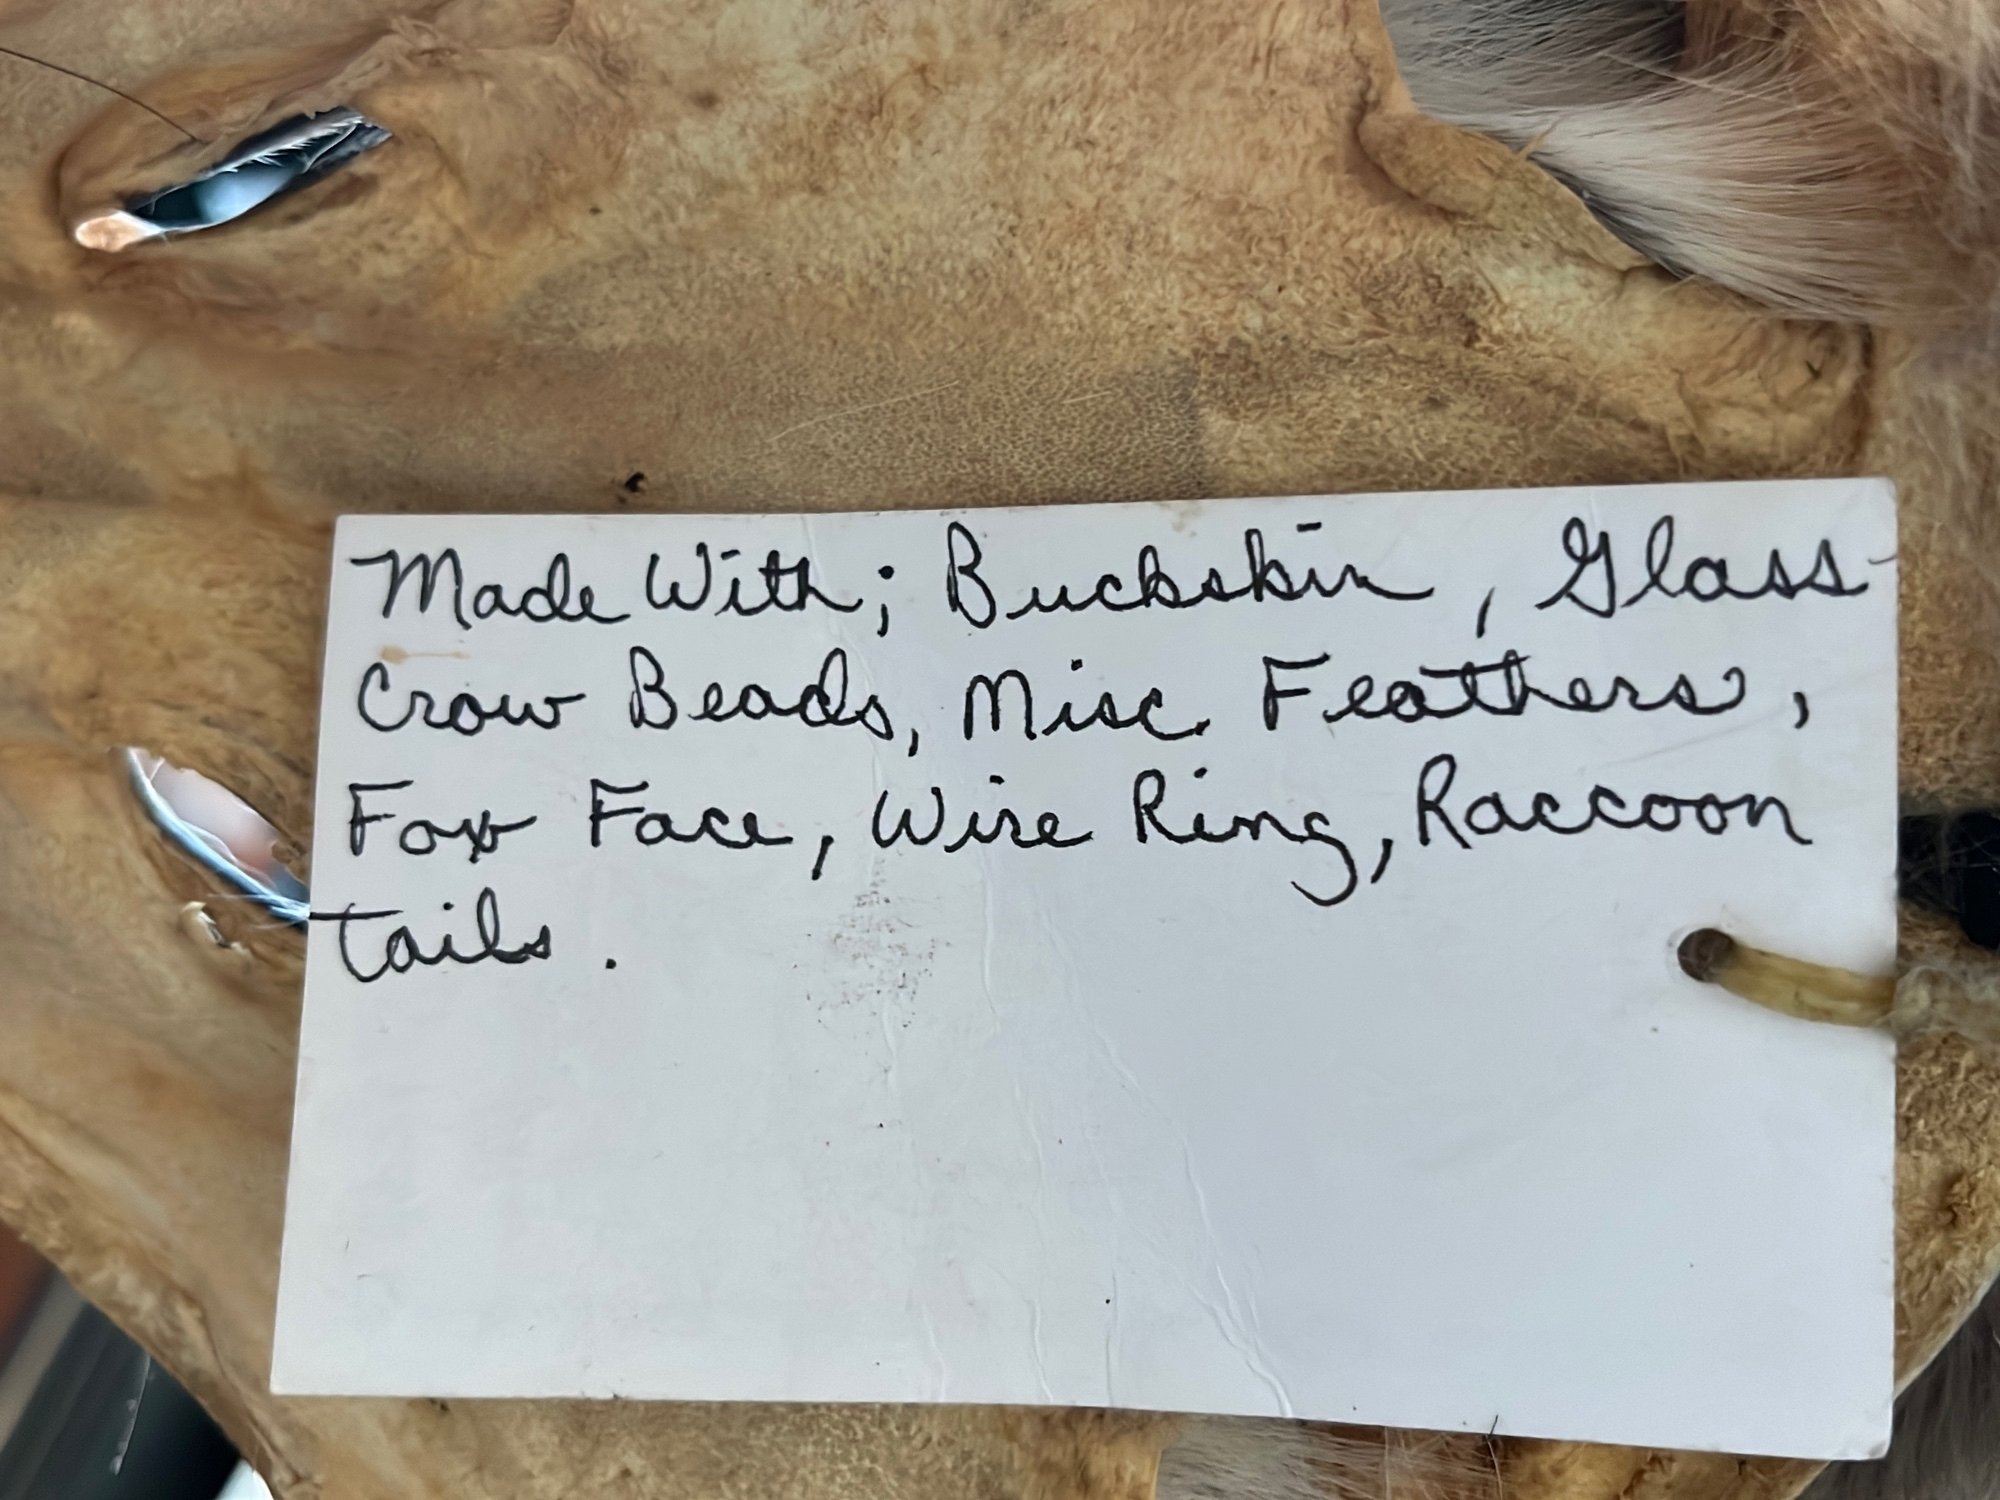 Made With; Buckskin, Glass-
Crow Beads, Misc. Feathers,
Fox Face, Wire Ring, Raccoon
tails.